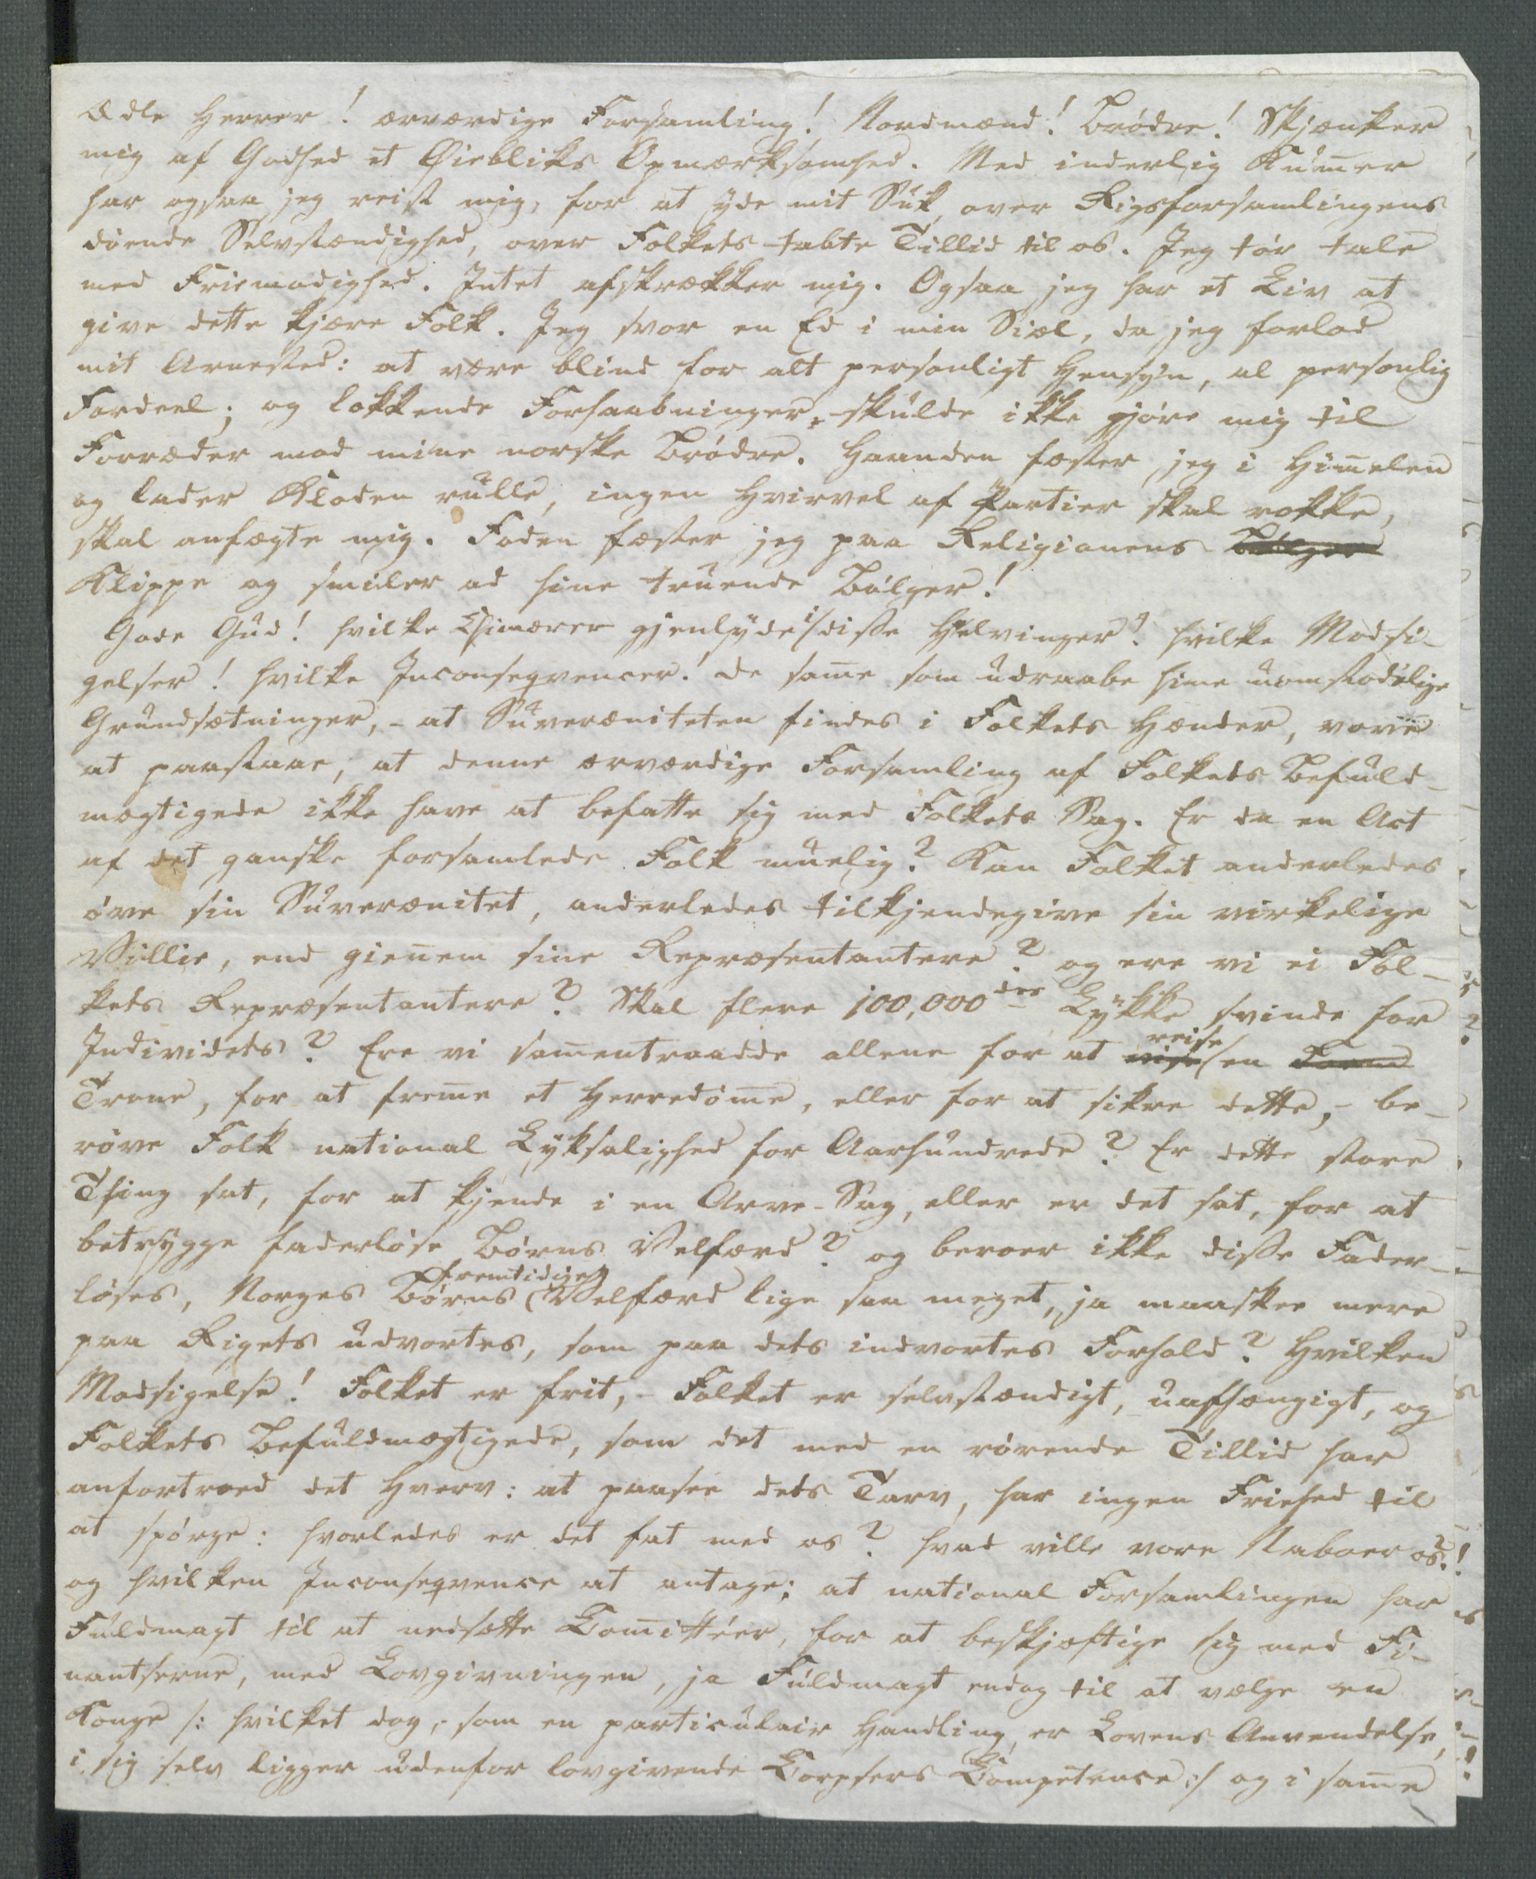 Ædle Herrer! ærværdige Forsamling! Nordmænd! Brödre! Skjænker
mig af Godhed et Øiebliks Opmærksomhed. Med inderlig Kum̄er
har ogsaa jeg reist mig, for at yde mit Suk, over Rigsforsamlingens
döende Selvstændighed, over Folkets tabte Tillid til os. Jeg tör tale
med Friemodighed. Intet afskrækker mig. Ogsaa jeg har et Liv at
give dette kjære Folk. Jeg svor en Ed i min Siæl, da jeg forlod
mit Arnested: at være blind for alt personligt Hensyn, al personlig
Fordeel; og lokkende Forhaabninger, skulde ikke gjöre mig til
Forræder mod mine norske Brödre. Haanden fæster jeg i Him̄elen
og lader Kloden rulle, ingen Hvirvel af Partier skal rokke,
skal anfægte mig. Foden fæster jeg paa Religionens Bölger
Klippe og smiler ad hine truende Bölger!
Gode Gud! hvilke Chimærer gjenlyde i disse Hvelvinger? hvilke Modsi-
gelser! hvilke Inconseqvencer! de sam̄e som udraabe hine uomstödelige
Grundsætninger, - at Suveræniteten findes i Folkets Hænder, vove
at paastaae, at denne ærværdige Forsamling af Folkets Befuld-
mægtigede ikke have at befatte sig med Folkets Sag. Er da en Act
af det ganske forsamlede Folk muelig? Kan Folket anderledes
öve sin Suverænitet, anderledes tilkjendegive sin virkelige
Villie, end gien̄em sine Repræsentantere? og ere vi ei Fol-
kets Repræsentantere? Skal flere 100,000des Lykke svinde for
Individets? Ere vi sam̄entraadde allene for at vise reise en Form
Trone, for at frem̄e et Herredöm̄e, eller for at sikre dette, - be-
röve Folk national Lyksalighed for Aarhundrede? Er dette store
Thing sat, for at kjende i en Arve-Sag, eller er det sat, for at
betrygge faderlöse Börns Velfærd? og beroer ikke disse Fader-
löses, Norges Börns fremtidige Velfærd lige saa meget, ja maaskee mere
paa Rigets udvortes, som paa dets indvortes Forhold? Hvilken
Modsigelse! Folket er frit, - Folket er selvstændigt, uafhængigt, og
Folkets Befuldmægtigede, som det med en rörende Tillid har
anfortroed det Hverv: at paasee dets Tarv, har ingen Friehed til
at spörge: hvorledes er det fat med os? hvad ville vore Naboer os?
og hvilken Inconseqvence at antage: at national Forsamlingen har
Fuldmagt til at nedsætte Com̄ittéer, for at beskjæftige sig med Fi-
nantserne, med Lovgivningen, ja Fuldmagt endog til at vælge en
Konge /: hvilket dog, som en particulair Handling, er Lovens Anvendelse,
i sig selv ligger udenfor lovgivende Corpsers Competence :/ og i sam̄e